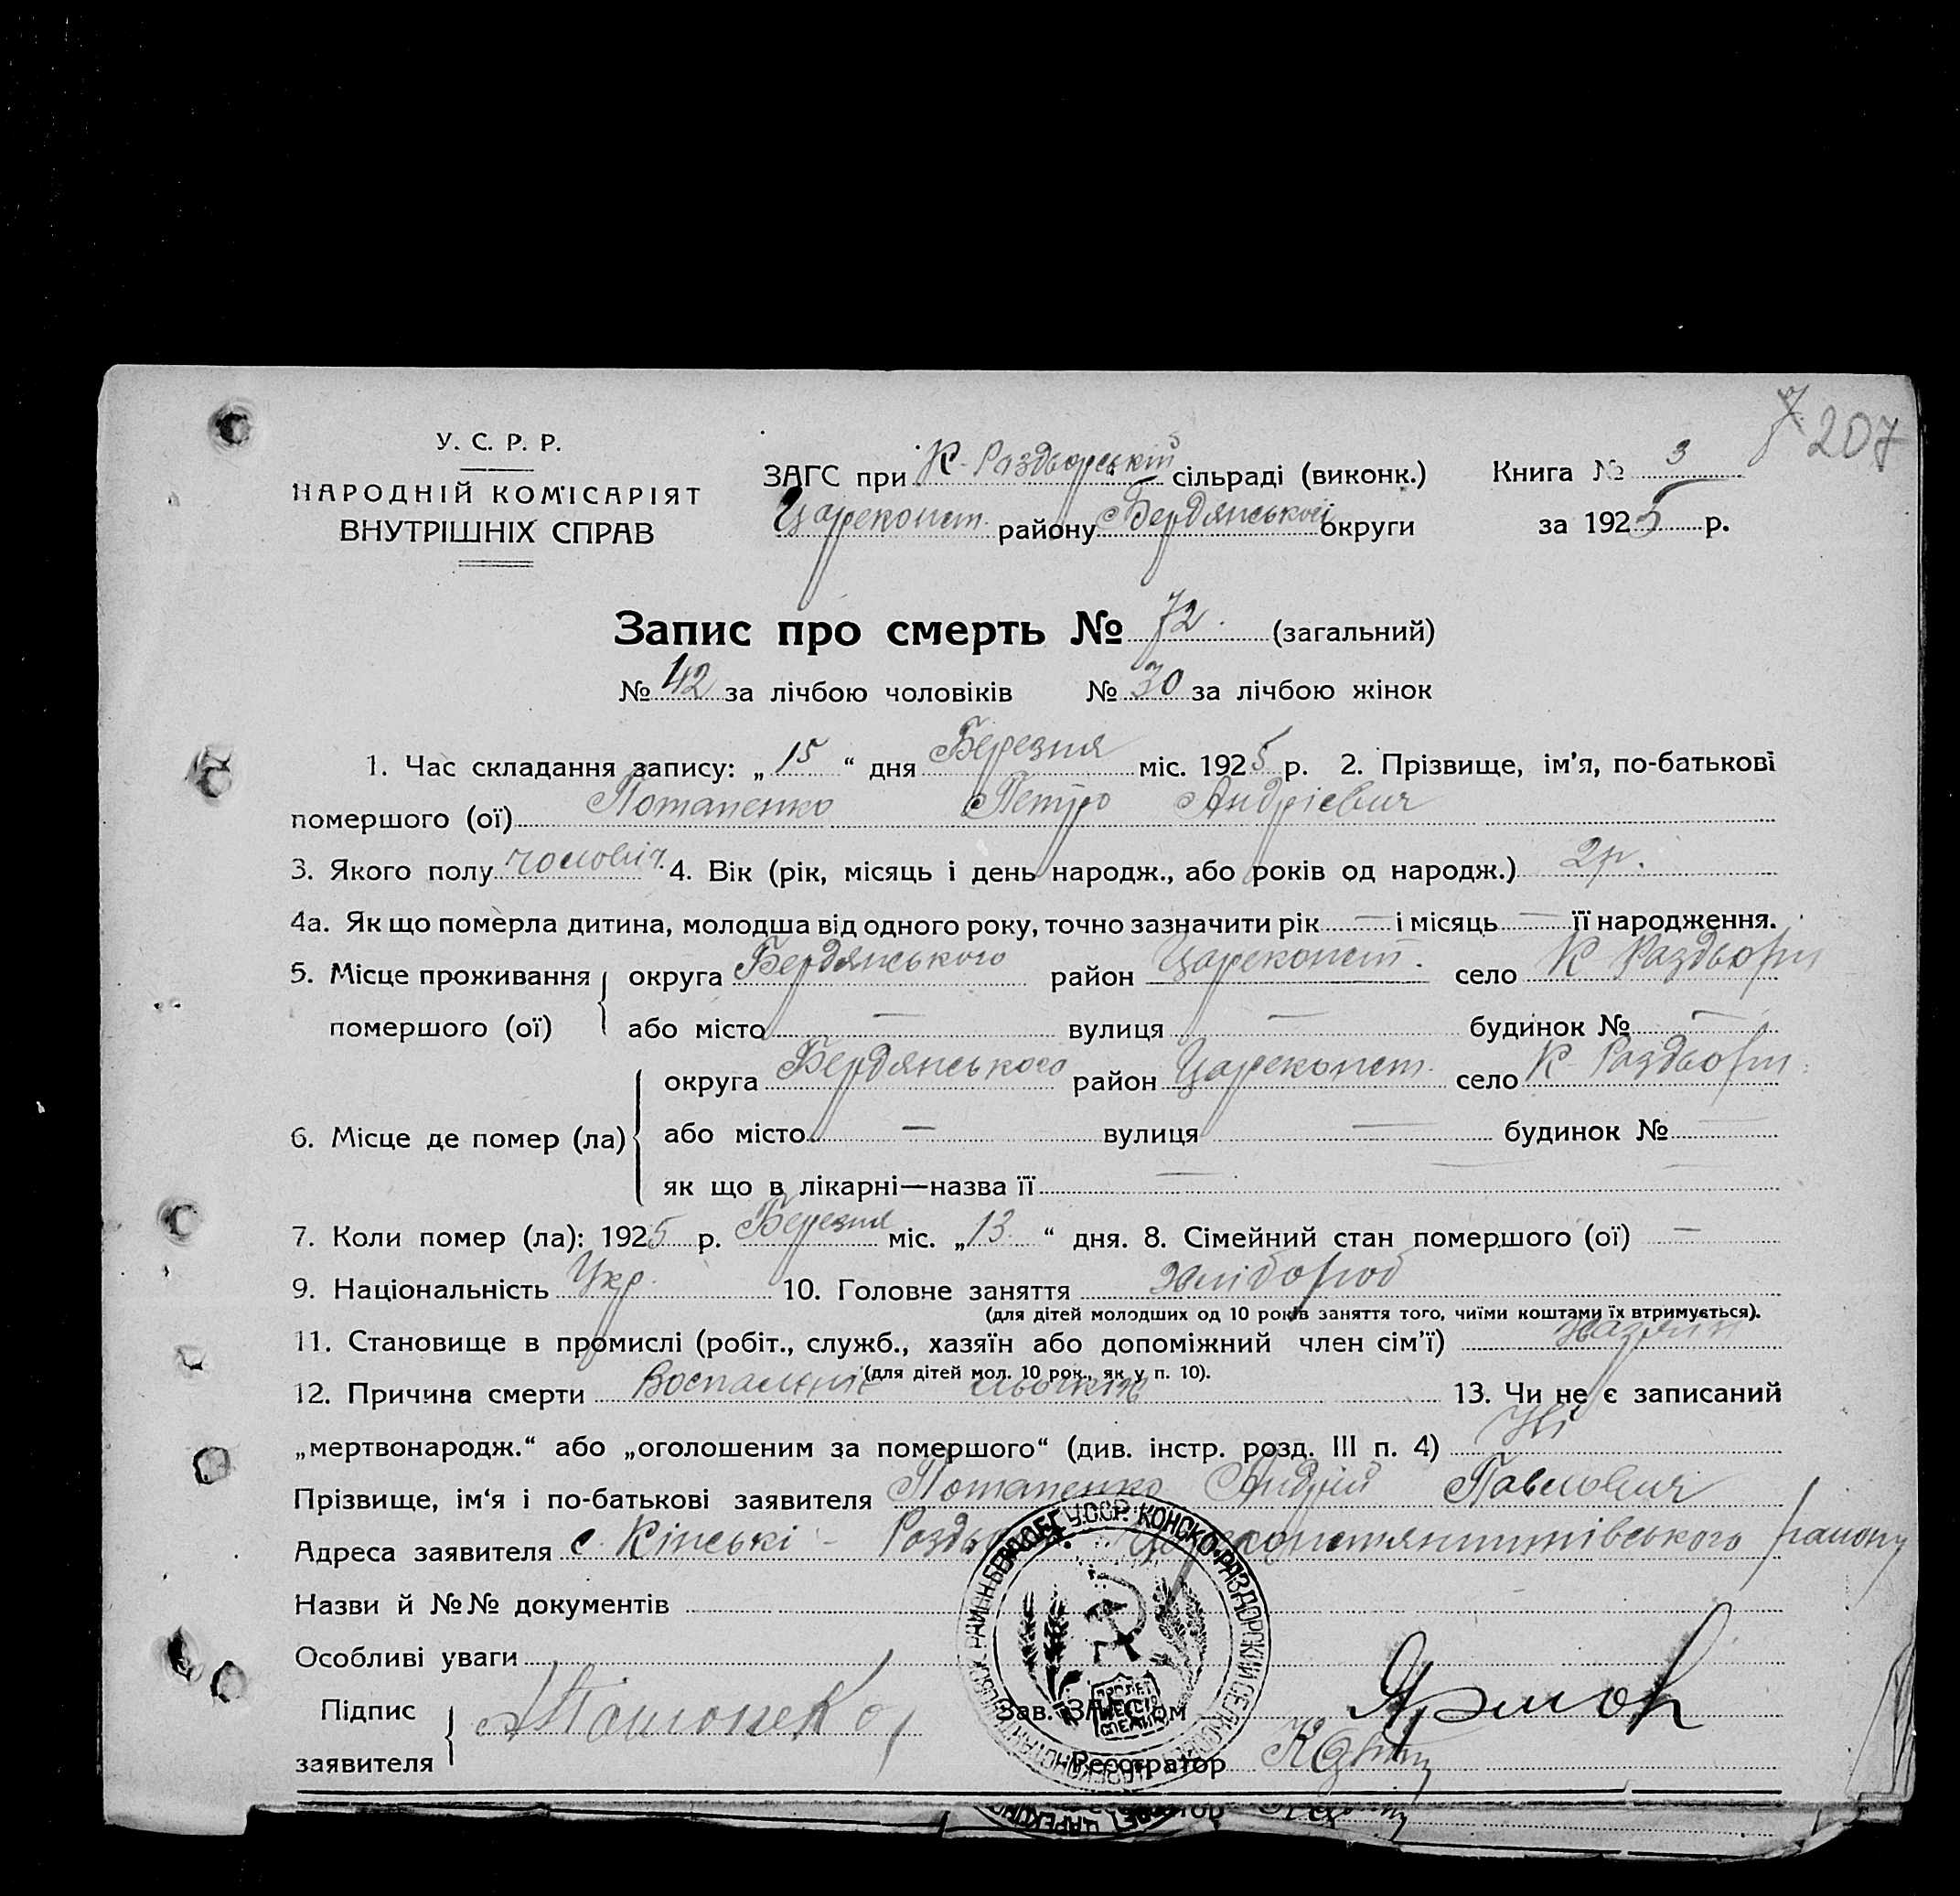 207
У. С. Р. Р.
НАРОДНІЙ КОМ'ІСАРІЯТ
ВНУТРІШНІХ СПРАВ
ЗАГС при К-Роздьорській сільраді (виконк.) Книга № 3
Цареконст. району Бердянської округи за 1925 р.
Запис про смерть № 72. (загальний)
№ 42 за лічбою чоловіків № 30 за лічбою жінок
1. Час складання запису: „ 15 “ дня Березня міс. 1925 р. 2. Прізвище, ім’я, по-батькові
помершого (ої) Потапенко Петро Андрієвич
3. Якого полу чоловіч. 4. Вік (рік, місяць і день народж., або років од народж.) 2 р.
4а. Як що померла дитина, молодша від одного року, точно зазначити рік — і місяць — її народження.
5. Місце проживання округа Бердянського район Цареконст. село К Роздьори
помершого (ої) або місто — вулиця — будинок № —
округа Бердянського район Цареконст. село К-Роздьори
6. Місце де помер (ла) або місто — вулиця — будинок № —
як що в лікарні—назва її —
7. Коли помер (ла): 1925 р. Березня міс. „ 13 “ дня. 8. Сімейний стан помершого (ої) —
9. Національність Укр. 10. Головне заняття хлібороб
(для дітей молодших од 10 років заняття того, чиїми коштами їх втримується).
11. Становище в промислі (робіт., служб., хазяїн або допоміжний член сім’ї) хазяїн
(для дітей мол. 10 рок., як у п. 10).
12. Причина смерти Воспаленіє льогкіх 13. Чи не є записаний
„мертвонародж.“ або „оголошеним за помершого“ (див. інстр. розд. III п. 4) Ні
Прізвище, ім‘я і по-батькові заявителя Потапенко Андрій Павлович
Адреса заявителя с. Кінські - Роздьори Цареконстянтинівського району
Назви й №№ документів
Особливі уваги
Підпис
заявителя
Зав. ЗАГС'ом
Реєстратор
У.С.С.Р. КОНСКО-РАЗДОРСКИЙ